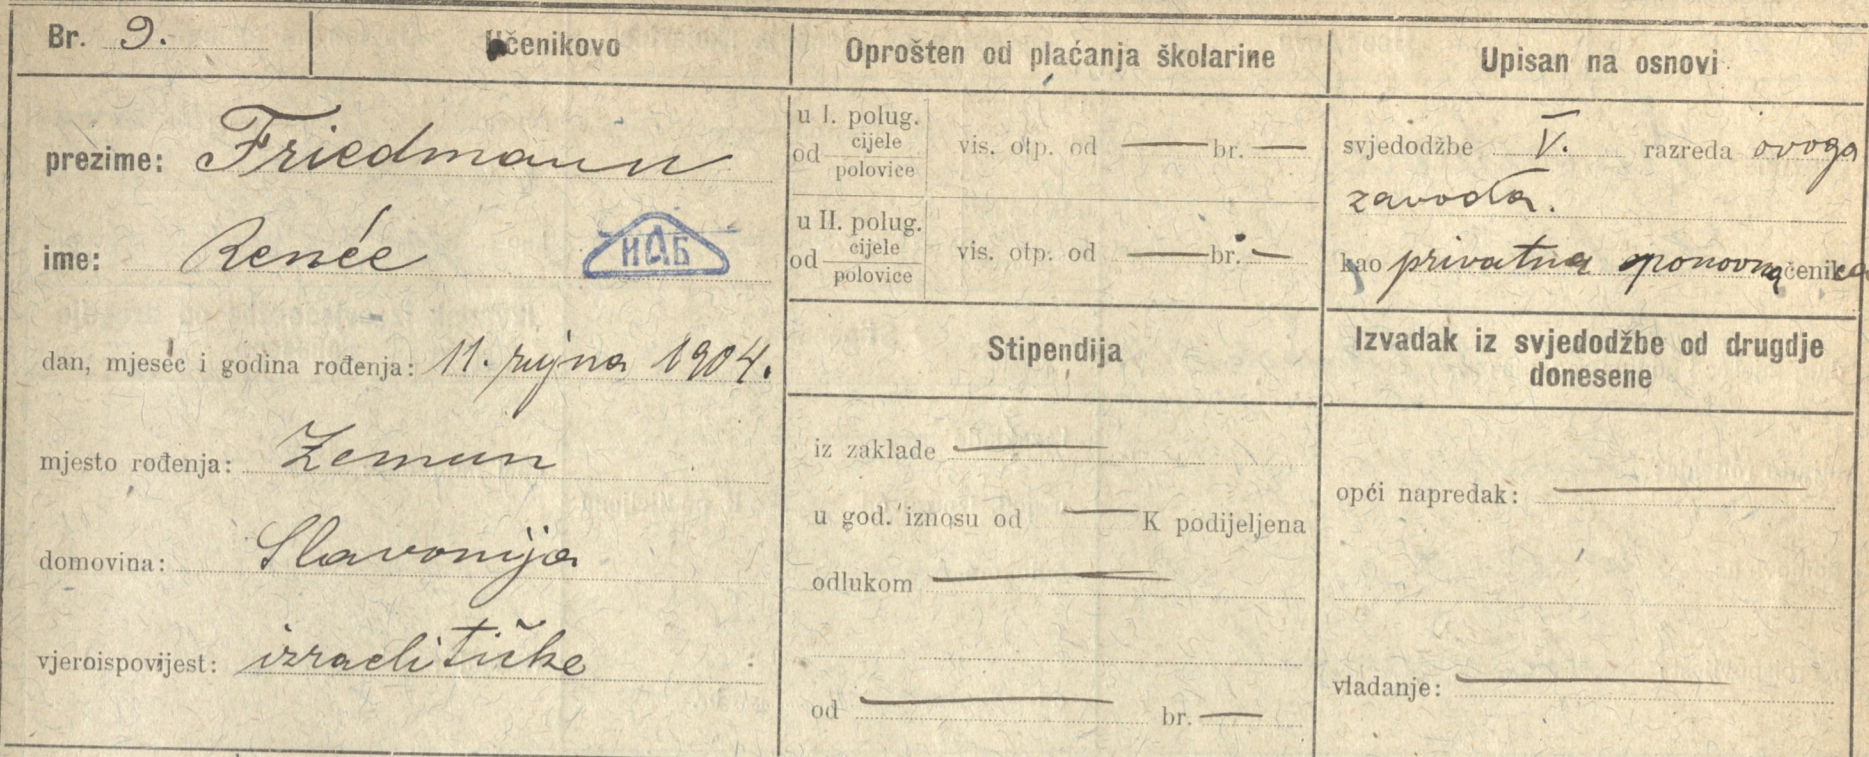 Br. 9.
Učenikovo
prezime: Friedmann
ime: Renée
ИАБ
dan, mjesec i godina rođenja: 11. rujna 1904.
mjesto rođenja: Zemun
domovina: Slavonija
vjeroispovijest: izraelitičke
Oprošten od plaćanja školarine
u I. polug.
od cijele vis. otp. od — br. —
polovice
u II. polug.
od cijele vis. otp. od — br. —
polovice
Stipendija
iz zaklade —
u god. iznosu od — K podijeljena
odlukom —
od — br. —
Upisan na osnovi
svjedodžbe V. razreda ovoga
zavoda.
kao privatna ponovna učenica
Izvadak iz svjedodžbe od drugdje
donesene
opći napredak: —
vladanje: —